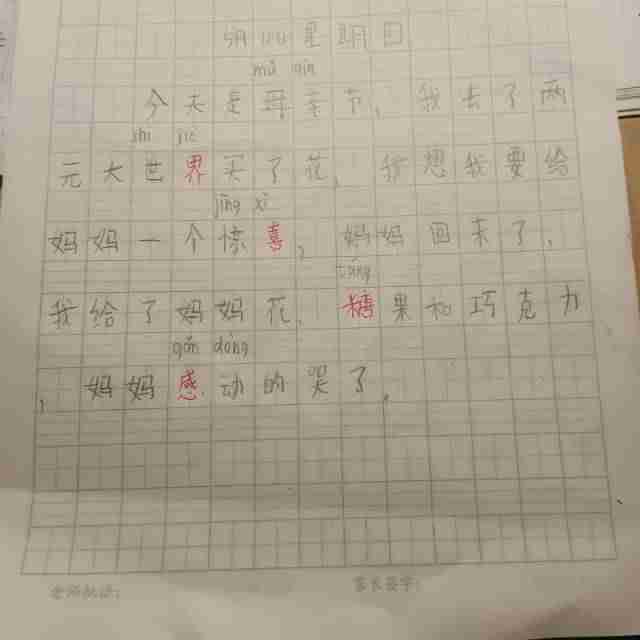 5月10日星期日
mǔ qīn
今天是母亲节，我去了两
shì jiè
元大世界买了花，我想我要给
jīng xǐ
妈妈一个惊喜，妈妈回来了，
táng
我给了妈妈花，糖果和巧克力
gǎn dòng
，妈妈感动的哭了。
老师批语： 家长签字：